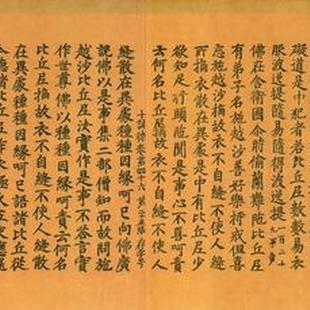 礙道是中犯者若比丘尼數數易衣
服波逸提隨易隨得波逸提
一百二十
九事竟
佛在舍衛國尒時偷蘭難陁比丘尼
有弟子名施越沙善好樂持戒但喜
忘施越沙擿故衣不自縫不使人縫
所擿衣散在異處是中有比丘尼少
欲知足行頭陁聞是事心不喜呵責
云何名比丘尼擿故衣不自縫不使人
縫散在異處種種因緣呵已向佛廣
說佛以是事集二部僧知而故問施
越沙比丘尼汝實作是事不荅言實
作世尊佛以種種因緣呵責云何名
比丘尼擿故衣不自縫不使人縫散
在異處種種因緣呵已語諸比丘從